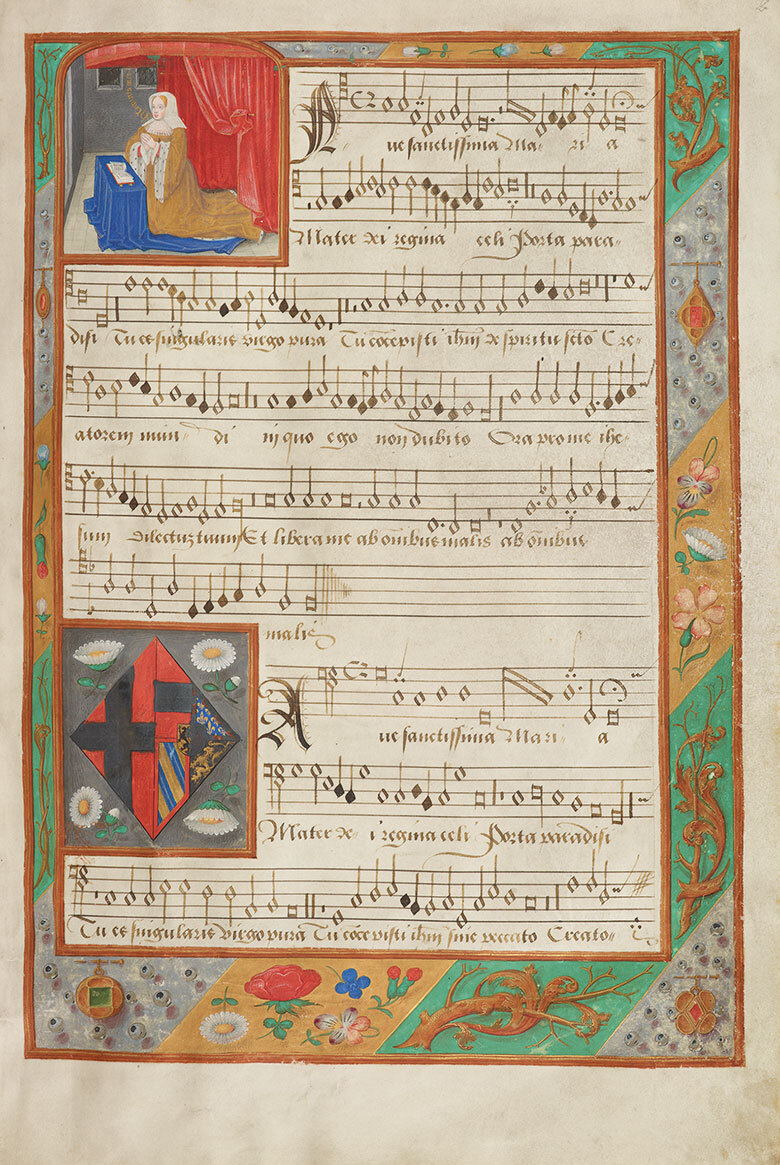 Ave sanctissima Mari a
Mater dei regina celi Porta para-
disi Tu es singularis virgo pura Tu cōcepisti ihm̄ de spiritu sctō Cre-
atorem mun- di in quo ego non dubito Ora pro me ihe-
sum dilectuz tuum Et libera me ab om̄ibus malis ab om̄ibus
malis
Ave sanctissima Mari- a
Mater de- i regina celi Porta paradisi
Tu es singularis virgo pura Tu cōcepisti ihm̄ sine peccato Creato-